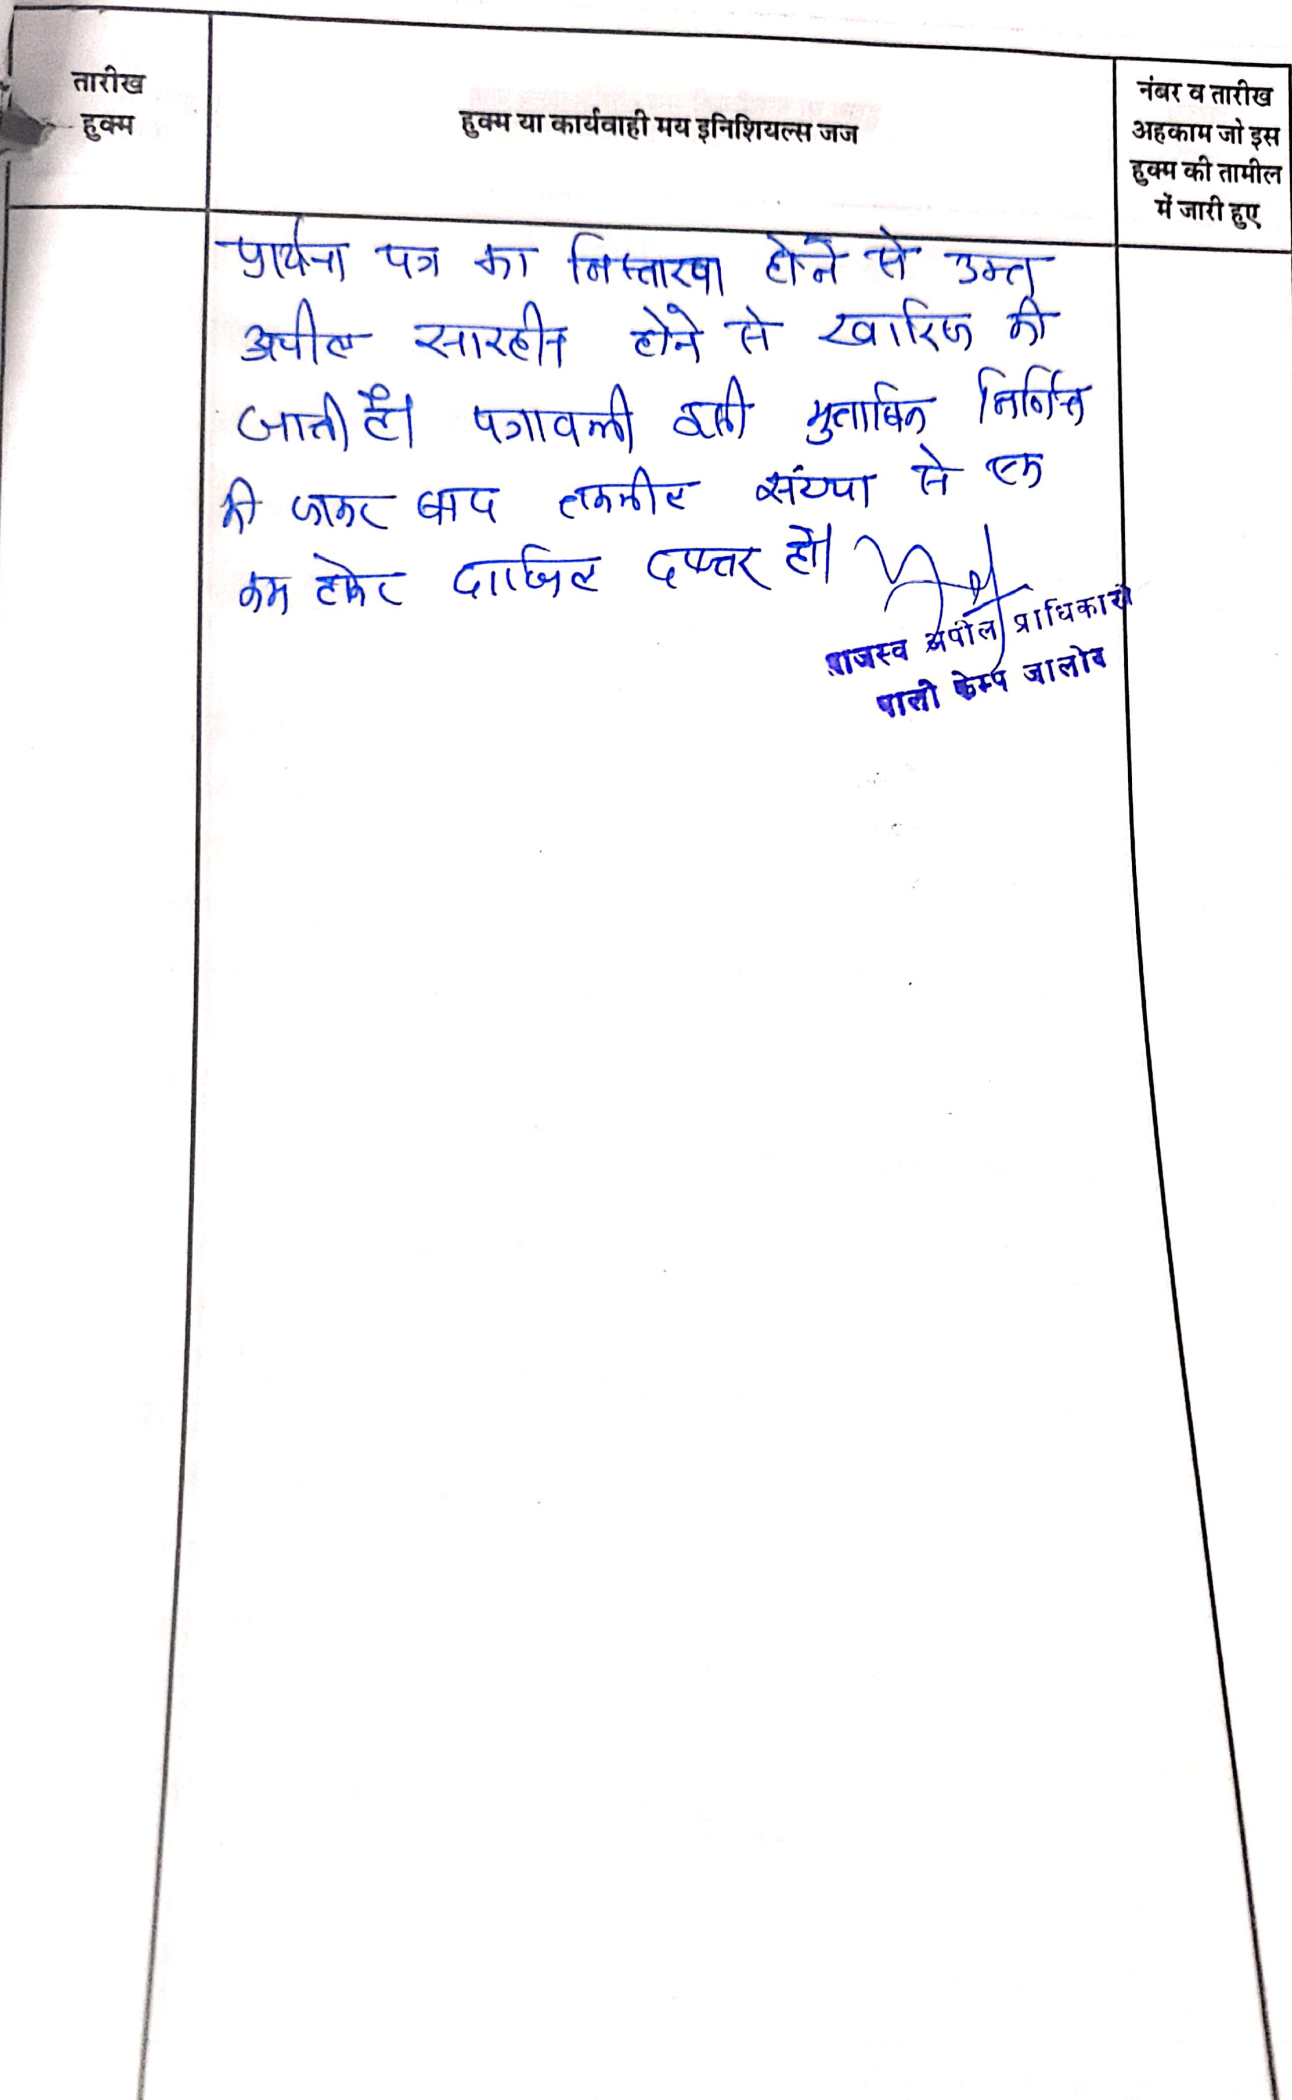 तारीख
हुक्म
हुक्म या कार्यवाही मय इनिशियल्स जज
नंबर व तारीख
अहकाम जो इस
हुक्म की तामील
में जारी हुए
प्रार्थना पत्र का निस्तारण होने से उक्त
अपील सारहीन होने से खारिज की
जाती है। पत्रावली इसी मुताबिक निर्णित
की जाकर बाद तकमील संख्या से एक
कम होकर दाखिल दफ्तर हो।
राजस्व अपील प्राधिकारी
पाली केम्प जालोर